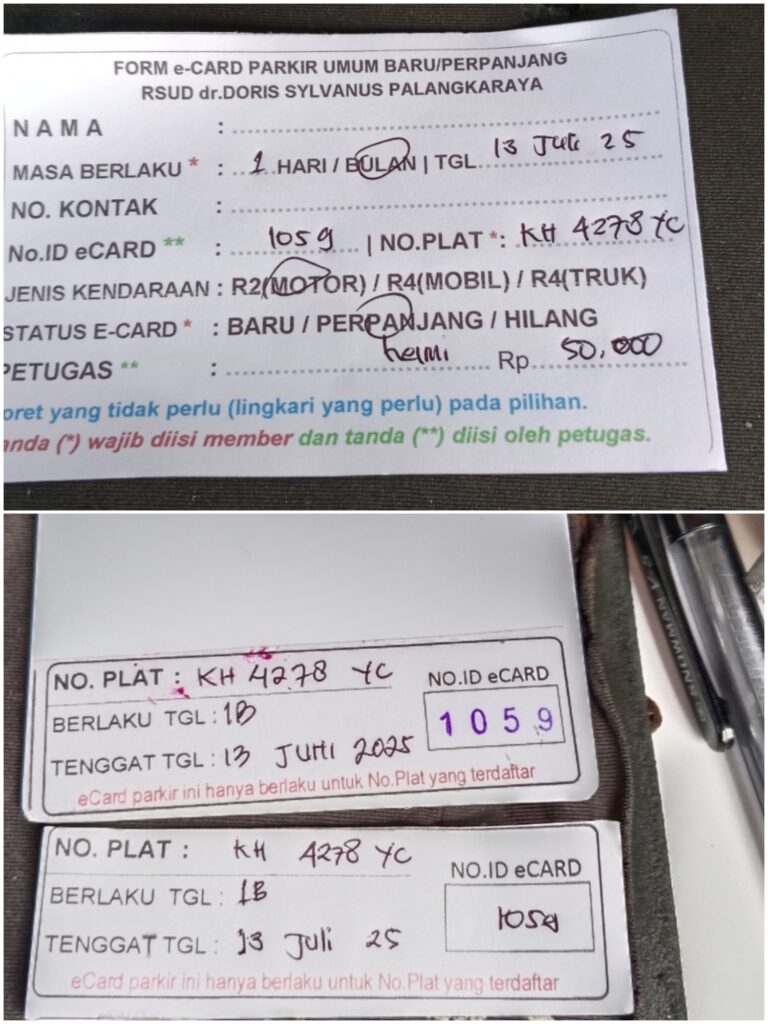 FORM e-CARD PARKIR UMUM BARU/PERPANJANG
RSUD dr.DORIS SYLVANUS PALANGKARAYA
NAMA :
MASA BERLAKU * : 1 HARI / BULAN | TGL 13 Juli 25
NO. KONTAK :
No.ID eCARD ** : 1059 | NO.PLAT *: KH 4278 YC
JENIS KENDARAAN : R2(MOTOR) / R4(MOBIL) / R4(TRUK)
STATUS E-CARD * : BARU / PERPANJANG / HILANG
PETUGAS ** : helmi Rp 50.000
oret yang tidak perlu (lingkari yang perlu) pada pilihan.
anda (*) wajib diisi member dan tanda (**) diisi oleh petugas.
NO. PLAT : KH 4278 YC
NO.ID eCARD
BERLAKU TGL : 1B
1059
TENGGAT TGL : 13 JUNI 2025
eCard parkir ini hanya berlaku untuk No.Plat yang terdaftar
NO. PLAT : KH 4278 YC
NO.ID eCARD
BERLAKU TGL : 1B
1059
TENGGAT TGL : 13 Juli 25
eCard parkir ini hanya berlaku untuk No.Plat yang terdaftar